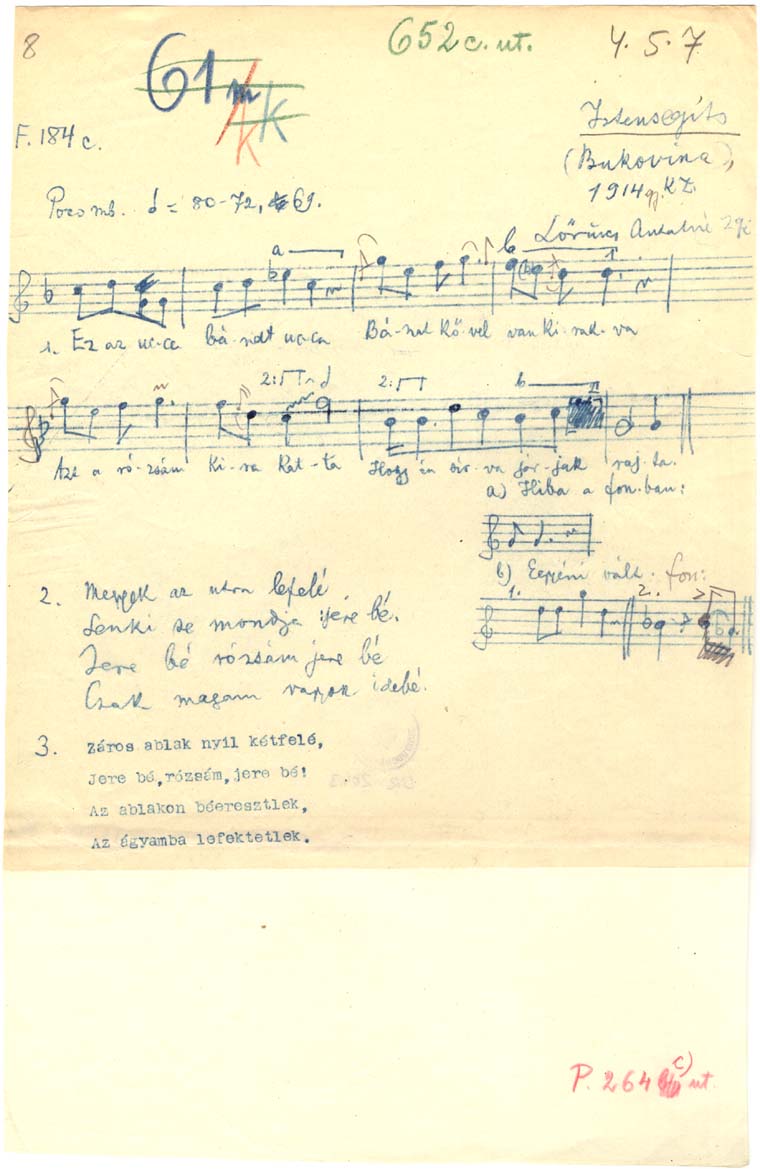 8
652 c. ut.
4. 5. 7
61m
F. 184 c.
Istensegíts
(Bukovina),
1914 gy. KZ.
= 80-72, 69.
Lőrincz Antalné
a
b
1. Ez az ucca bá-nat ucca Bá-nat kő-vel van ki-rak-va
2:
2:
b
Azt a ró-zsám Ki-ra kat-ta Hogy én sír-va jár-jak raj-ta.
a) Hiba a fon.ban:
b) vált. fon:
1.
2.
2. Megyek az utca lefelé
Senki se mondja jere bé.
Jere bé rózsám jere bé
Csak magam vagyok idebé.
3. Záros ablak nyíl kétfelé,
Jere bé, rózsám, jere bé!
Az ablakon béeresztlek,
Az ágyamba lefektetlek.
P. 264 c) ut.